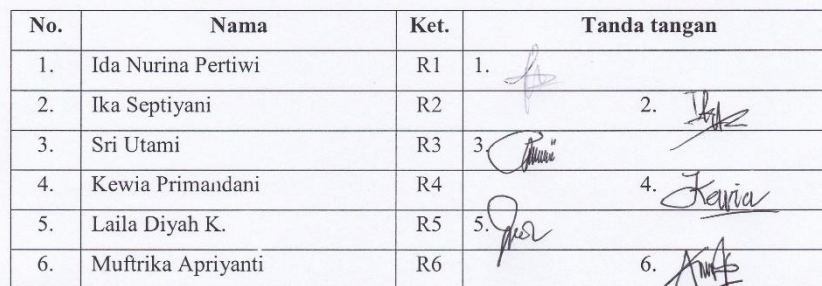 No. Nama Ket. Tanda tangan
1. Ida Nurina Pertiwi R1 1.
2. Ika Septiyani R2 2.
3. Sri Utami R3 3.
4. Kewia Primandani R4 4. Kewia
5. Laila Diyah K. R5 5.
6. Muftrika Apriyanti R6 6.